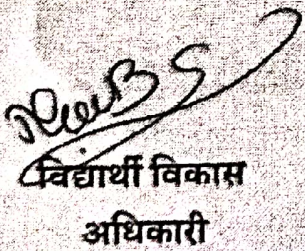 विद्यार्थी विकास
अधिकारी